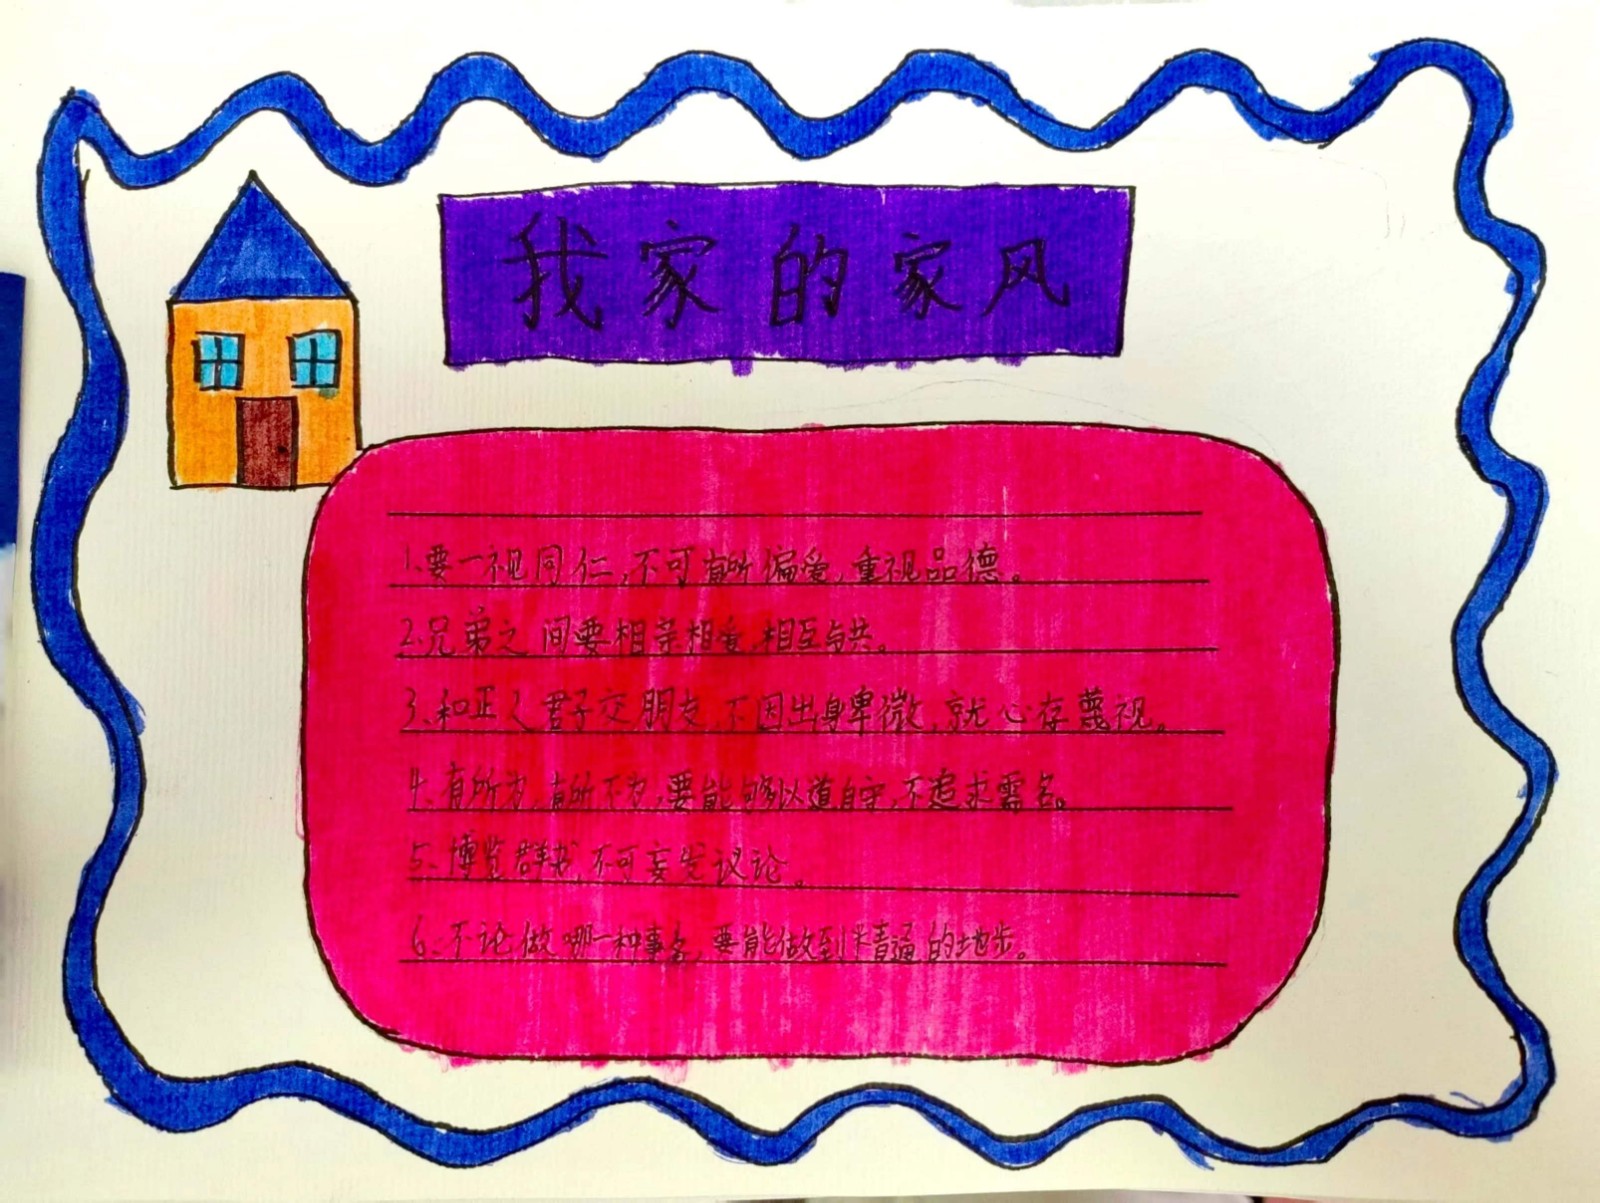 我家的家风
1.要一视同仁,不可有所偏爱,重视品德。
2.兄弟之间要相亲相爱,相互与共。
3.和正人君子交朋友,不因出身卑微,就心存蔑视。
4.有所为,有所不为,要能够以道自守,不追求需名。
5.博览群书,不可妄发议论。
6.不论做哪一种事务,要能做到精通的地步。